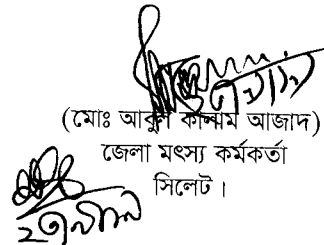 (মোঃ আবুল কালাম আজাদ)
জেলা মৎস্য কর্মকর্তা
সিলেট।